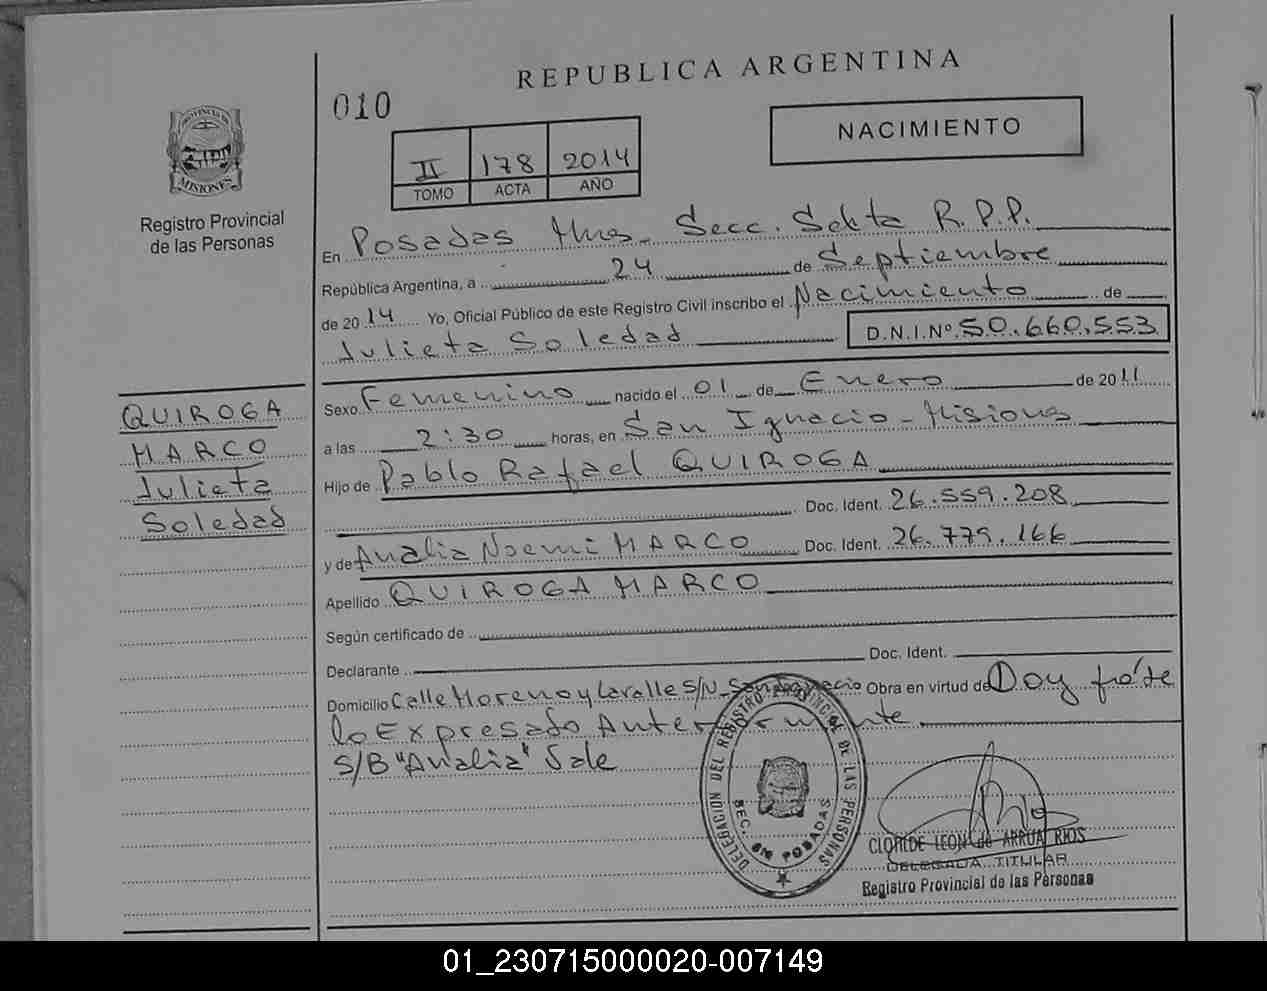 REPUBLICA ARGENTINA
010
NACIMIENTO
II 178 2014
TOMO ACTA AÑO
PROVINCIA DE
MISIONES
Registro Provincial
de las Personas
En Posadas Mnes. Secc. Sexta R.P.P.
República Argentina, a 24 de Septiembre
de 2014 Yo, Oficial Público de este Registro Civil inscribo el Nacimiento de
Julieta Soledad D.N.I.Nº 50.660.553
Sexo Femenino nacido el 01 de Enero de 2011
a las 2:30 horas, en San Ignacio - Misiones
Hijo de Pablo Rafael QUIROGA
Doc. Ident. 26.559.208
y de Analia Noemi MARCO Doc. Ident. 26.779.166
Apellido QUIROGA MARCO
Según certificado de
Declarante Doc. Ident.
Domicilio Calle Moreno y Lavalle S/N - San Ignacio Obra en virtud de Doy fé de
lo Expresado Anteriormente
S/B "Analia" Vale
QUIROGA
MARCO
Julieta
Soledad
DELEGACION DEL REGISTRO PROVINCIAL DE LAS PERSONAS
SEC. 6ta POSADAS
CLORIDE LEON de ARRUA RIOS
DELEGADA TITULAR
Registro Provincial de las Personas
01_230715000020-007149